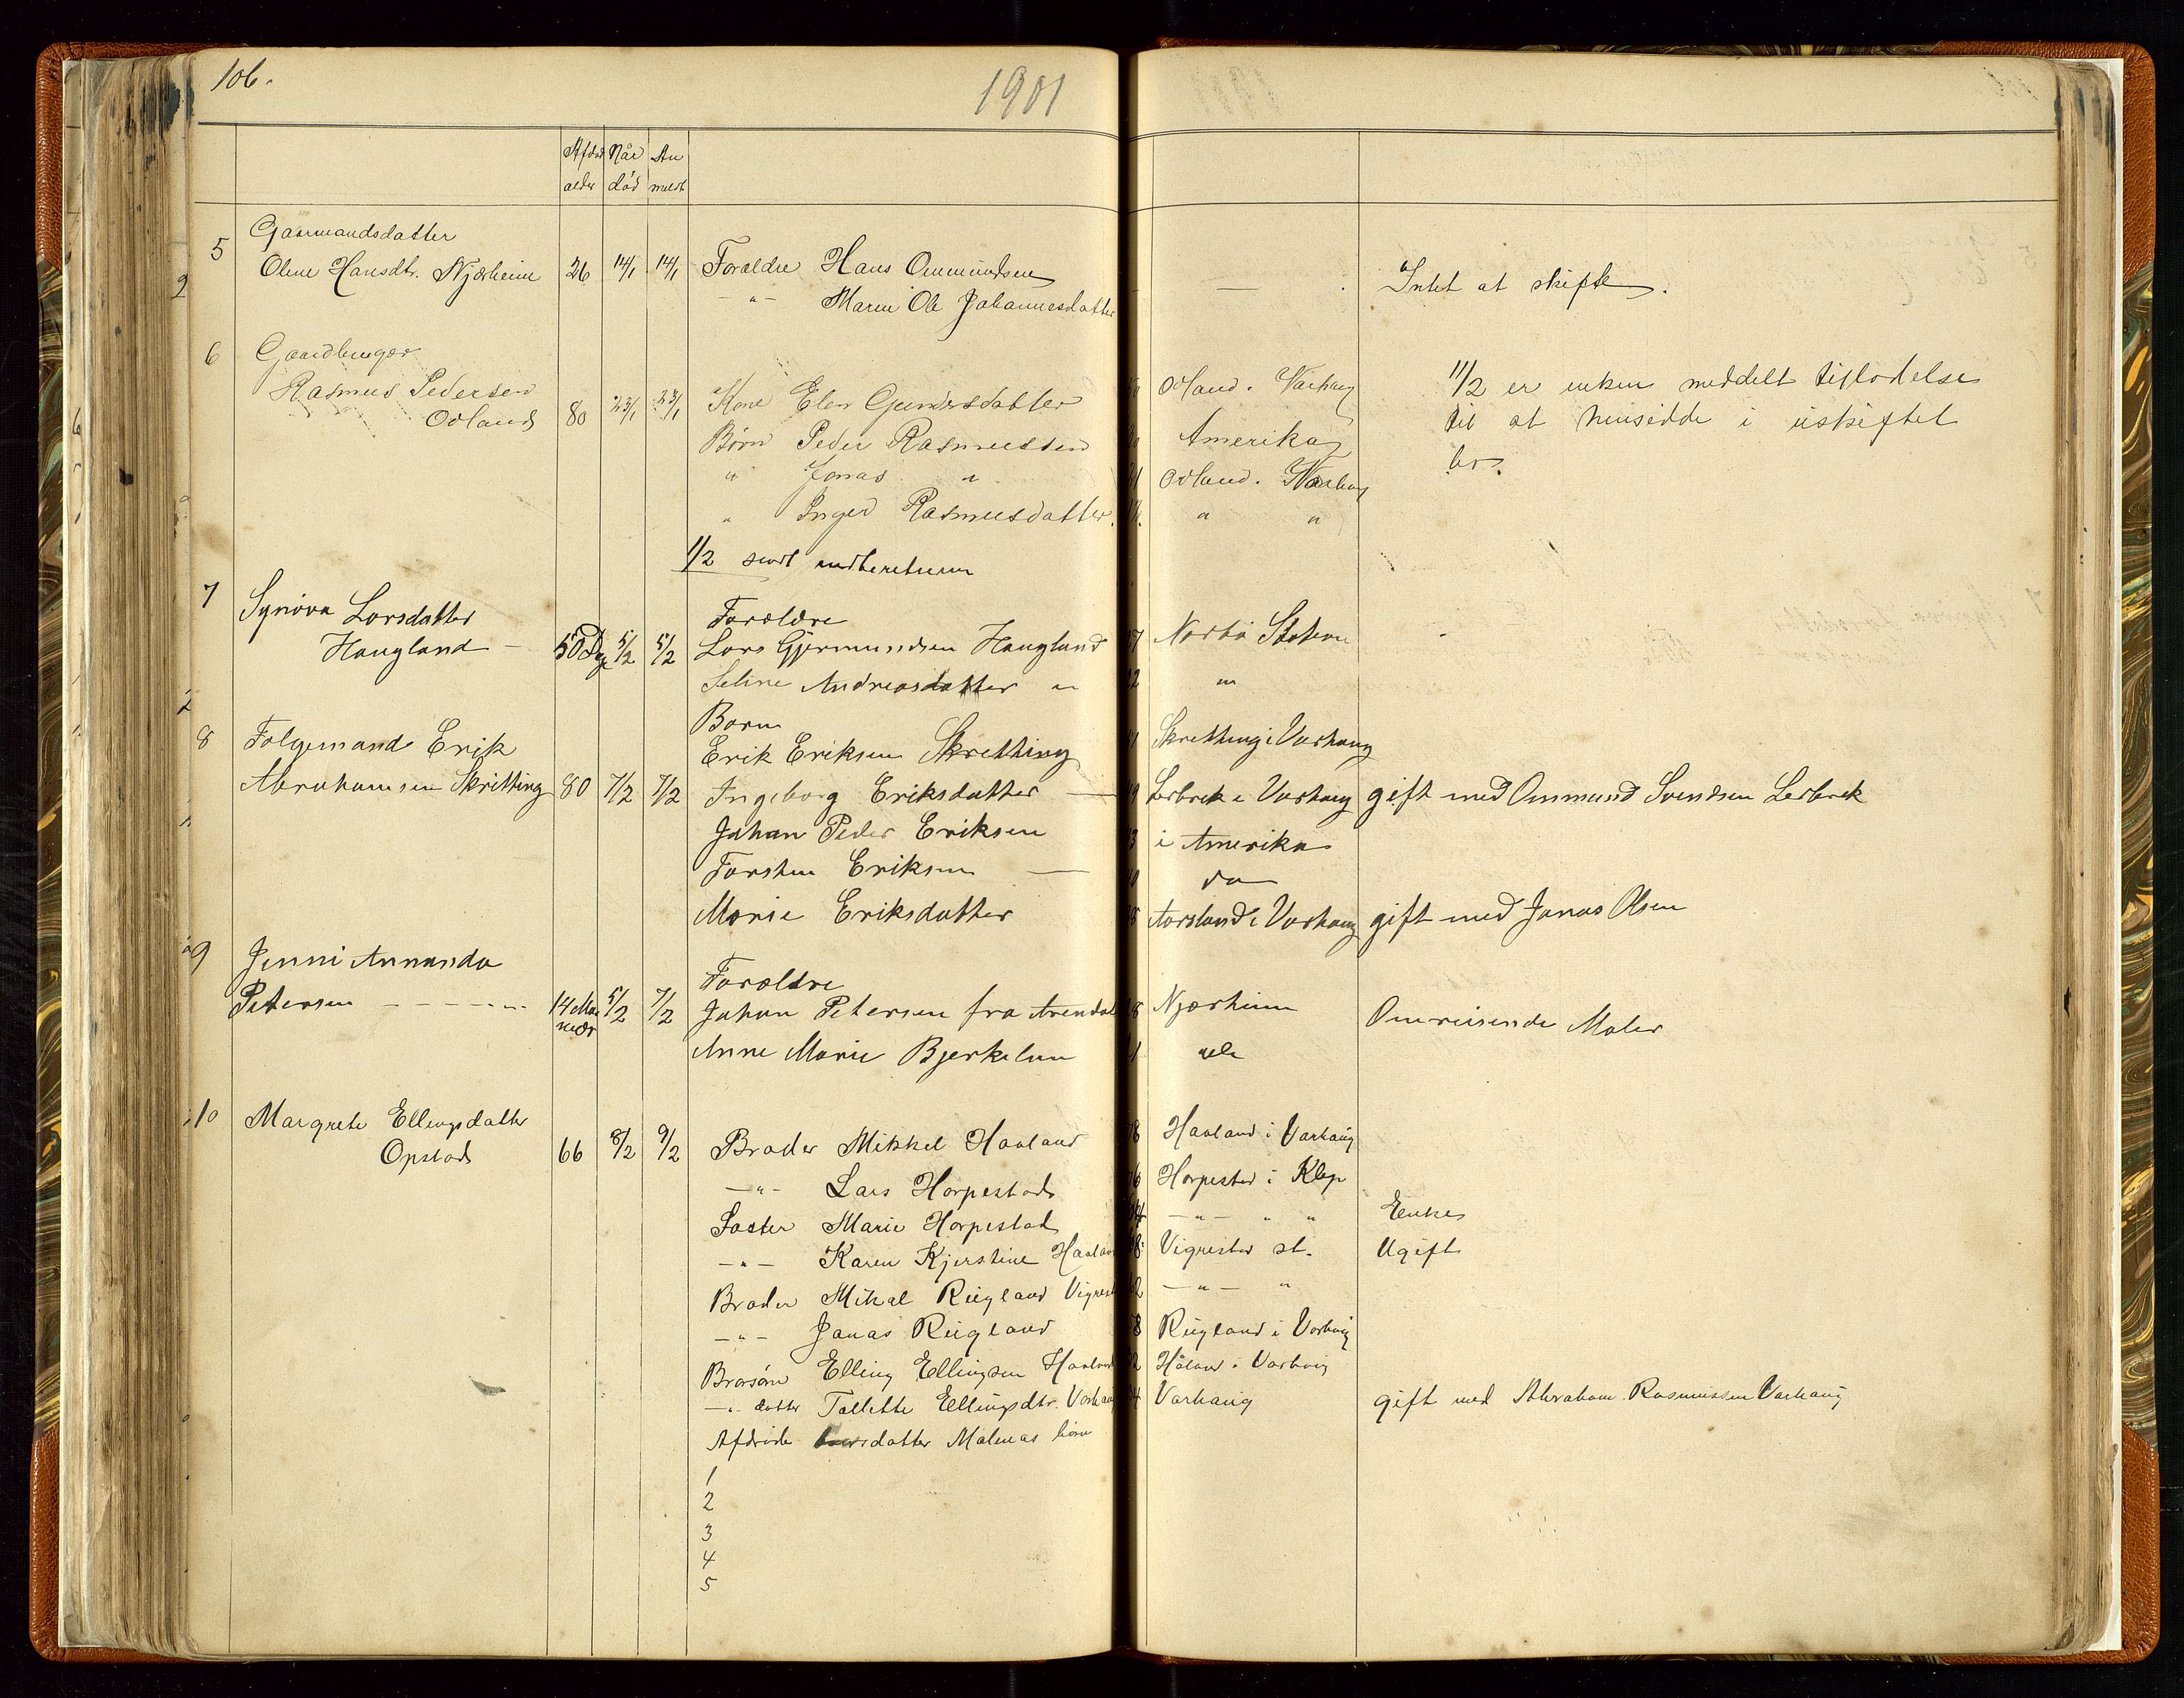 106.
1901
Afdød Når An
alder død meldt
5 Gaarmandsdatter
Olene Hansdtr. Njærheim 26 14/1 14/1 Forældre Hans Ommundsen — Intet at skifte.
-"- Maren Ole Johannesdatter
6 Gaardbruger
Rasmus Pedersen
Odland 80 23/1 23/1 Kone Elen Gundersdatter Odland. Varhaug 11/2 er enken meddelt tilladelse
Børn Peder Rasmussen Amerika til at hensidde i uskiftet
" Jonas " Odland. Varhaug bo.
" Inger Rasmusdatter. " "
1/2 sendt indberetning
7 Synøva Larsdatter Forældre
Haugland — 50 Dge 5/2 5/2 Lars Gjermundsen Haugland Nærbø Station
Seline Andreasdatter " "
Børn
8 Folgemand Erik Erik Eriksen Skretting Skretting i Varhaug
Abrahamsen Skritting 80 7/2 7/2 Ingeborg Eriksdatter — Lerbrek i Varhaug gift med Ommund Svendsen Lerbrek
Johan Peder Eriksen i Amerika
Torsten Eriksen — do
Marie Eriksdatter Aarsland i Varhaug gift med Jonas Olsen
9 Jenni Amanda Forældre
Petersen ------ 14 Maaneder 5/2 7/2 Johan Petersen fra Arendal Njærheim Omreisende Maler
Anne Marie Bjerkelun
10 Margrete Ellingsdatter
Opstad 66 8/2 9/2 Broder Mikkel Haaland 78 Haaland i Varhaug
-"- Lars Horpestad 76 Horpestad i Klep
Søster Marie Horpestad -"- " " Enke
-"- Karen Kjerstine Haaland Vigrestad st. Ugift
Broder Mikal Rügland Vigrest -"- "
-"- Jonas Rügland Rügland i Varhaug
Brorsøn Elling Ellingsen Haaland Håland i Varhaug
-"- datter Tollette Ellingsdtr. Varhaug Varhaug gift med Abraham Rasmussen Varhaug
Afdøde datter Malenas børn
1
2
3
4
5